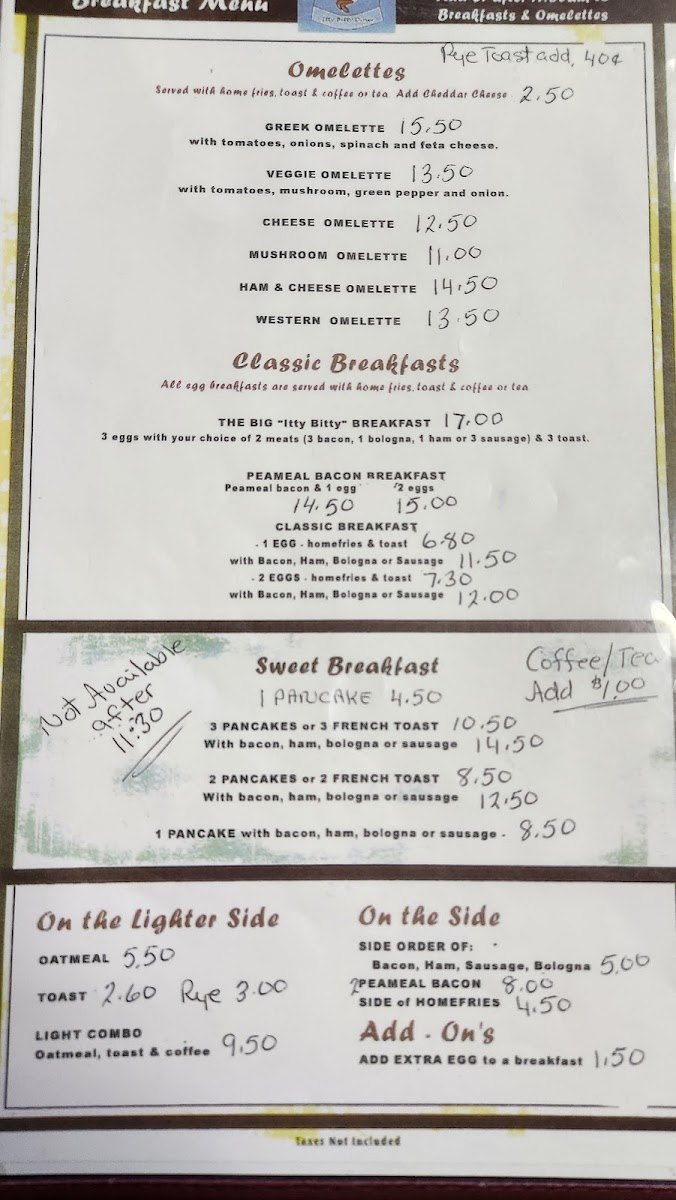 Breakfast Menu
Breakfasts & Omelettes
Rye Toast add, 40¢
Omelettes
Served with home fries, toast & coffee or tea. Add Cheddar Cheese 2.50
GREEK OMELETTE 15.50
with tomatoes, onions, spinach and feta cheese.
VEGGIE OMELETTE 13.50
with tomatoes, mushroom, green pepper and onion.
CHEESE OMELETTE 12.50
MUSHROOM OMELETTE 11.00
HAM & CHEESE OMELETTE 14.50
WESTERN OMELETTE 13.50
Classic Breakfasts
All egg breakfasts are served with home fries, toast & coffee or tea
THE BIG "Itty Bitty" BREAKFAST 17.00
3 eggs with your choice of 2 meats (3 bacon, 1 bologna, 1 ham or 3 sausage) & 3 toast.
PEAMEAL BACON BREAKFAST
Peameal bacon & 1 egg 2 eggs
14.50 15.00
CLASSIC BREAKFAST
- 1 EGG - homefries & toast 6.80
with Bacon, Ham, Bologna or Sausage 11.50
- 2 EGGS - homefries & toast 7.30
with Bacon, Ham, Bologna or Sausage 12.00
Not Available
after
11:30
Sweet Breakfast
Coffee/Tea
Add $1.00
1 PANCAKE 4.50
3 PANCAKES or 3 FRENCH TOAST 10.50
With bacon, ham, bologna or sausage 14.50
2 PANCAKES or 2 FRENCH TOAST 8.50
With bacon, ham, bologna or sausage 12.50
1 PANCAKE with bacon, ham, bologna or sausage - 8.50
On the Lighter Side
OATMEAL 5.50
TOAST 2.60 Rye 3.00
LIGHT COMBO
Oatmeal, toast & coffee 9.50
On the Side
SIDE ORDER OF:
Bacon, Ham, Sausage, Bologna 5.00
2 PEAMEAL BACON 8.00
SIDE of HOMEFRIES 4.50
Add - On's
ADD EXTRA EGG to a breakfast 1.50
Taxes Not Included